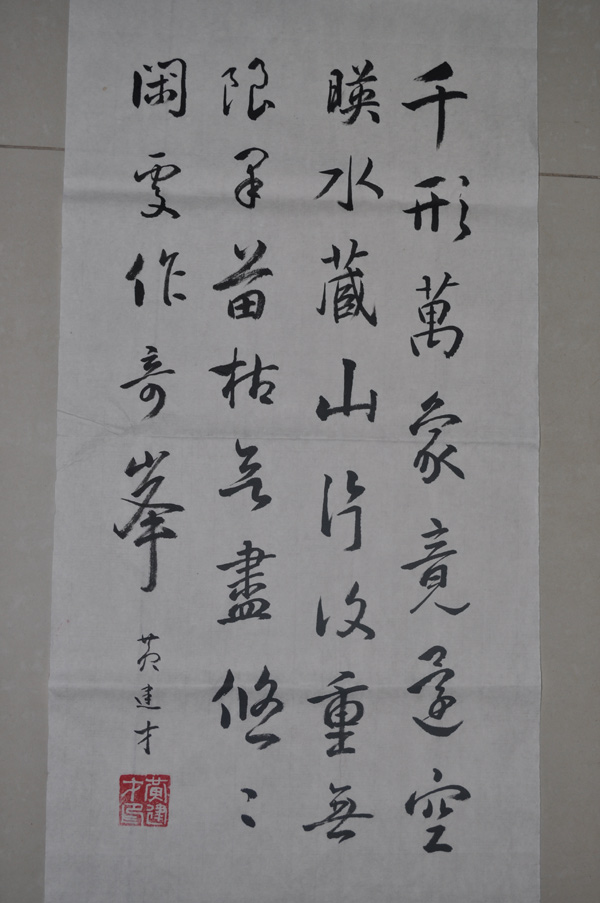 千形萬象竟還空
暎水藏山片復重無
限旱苗枯欲盡悠〻
閑處作奇峯
黄建才
黄建才印